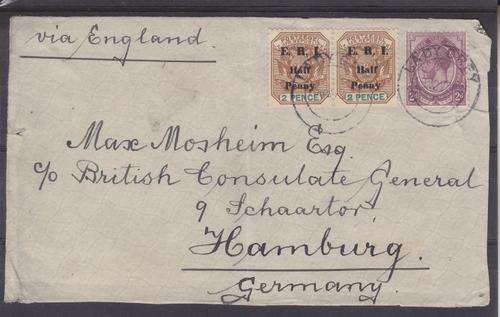 via England.
E. R. I.
Half
Penny
2 PENCE
E. R. I.
Half
Penny
2 PENCE
Max Mosheim Esq.
c/o British Consulate General
9 Schaartor
Hamburg.
Germany.